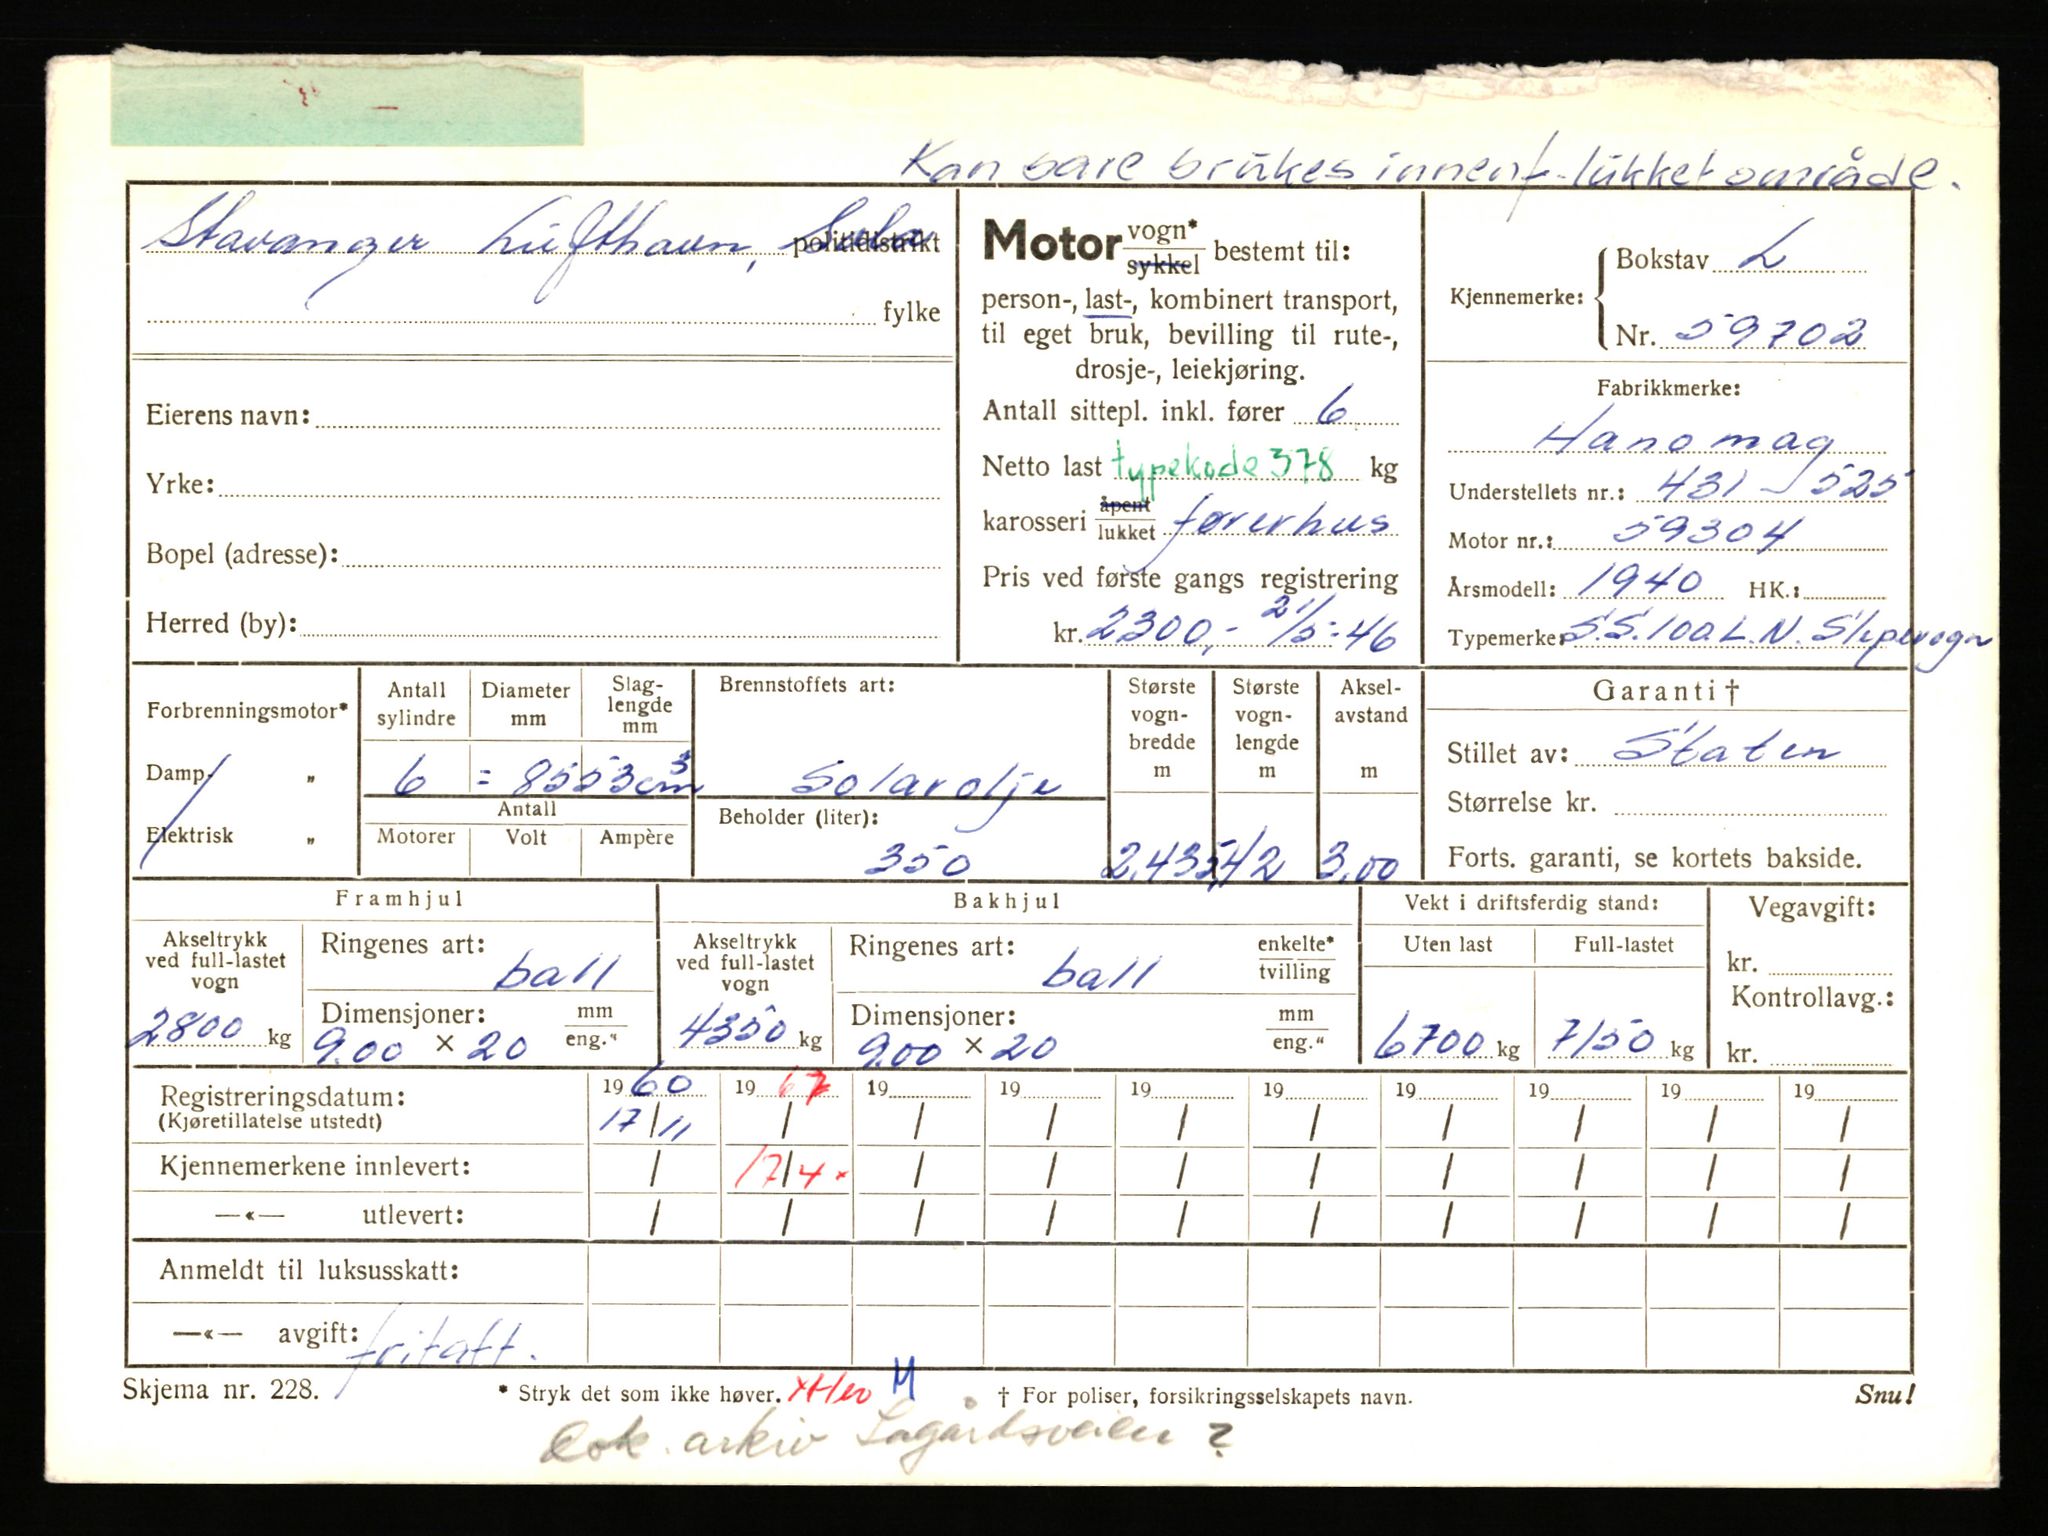 Kan bare brukes innenf. lukket område.
Stavanger Lufthavn, Sola politidistrikt
fylke
Eierens navn:
Yrke:
Bopel (adresse):
Herred (by):
Motor vogn* / sykkel bestemt til:
person-, last-, kombinert transport,
til eget bruk, bevilling til rute-,
drosje-, leiekjøring.
Antall sittepl. inkl. fører 6
Netto last typekode 378 kg
karosseri åpent / lukket førerhus
Pris ved første gangs registrering
kr. 2300,- 21/5-46
Kjennemerke: Bokstav L
Nr. 59702
Fabrikkmerke:
Hanomag
Understellets nr.: 431 - 525
Motor nr.: 59304
Årsmodell: 1940 HK.:
Typemerke: S.S.100.L.N. Slepevogn
Forbrenningsmotor*
Damp- "
Elektrisk "
Antall sylindre
Diameter mm
Slag-lengde mm
6 = 8553 cm3
Antall
Motorer Volt Ampère
Brennstoffets art:
Solarolje
Beholder (liter):
350
Største vogn-bredde m
2,43
Største vogn-lengde m
5,42
Aksel-avstand m
3,00
Garanti †
Stillet av: Staten
Størrelse kr.
Forts. garanti, se kortets bakside.
Framhjul
Akseltrykk ved full-lastet vogn
2800 kg
Ringenes art:
ball
Dimensjoner: mm / eng."
9.00 × 20
Bakhjul
Akseltrykk ved full-lastet vogn
4350 kg
Ringenes art: enkelte* / tvilling
ball
Dimensjoner: mm / eng."
9.00 × 20
Vekt i driftsferdig stand:
Uten last Full-lastet
6700 kg 7150 kg
Vegavgift:
kr.
Kontrollavg.:
kr.
Registreringsdatum: 1960 1967 19 19 19 19 19 19 19 19
(Kjøretillatelse utstedt) 17/11 / / / / / / / / /
Kjennemerkene innlevert: / 17/4 × / / / / / / / /
—«— utlevert: / / / / / / / / / /
Anmeldt til luksusskatt:
—«— avgift: fritatt.
Skjema nr. 228. * Stryk det som ikke høver. M † For poliser, forsikringsselskapets navn. Snu!
Dok. arkiv Lagårdsveien ?